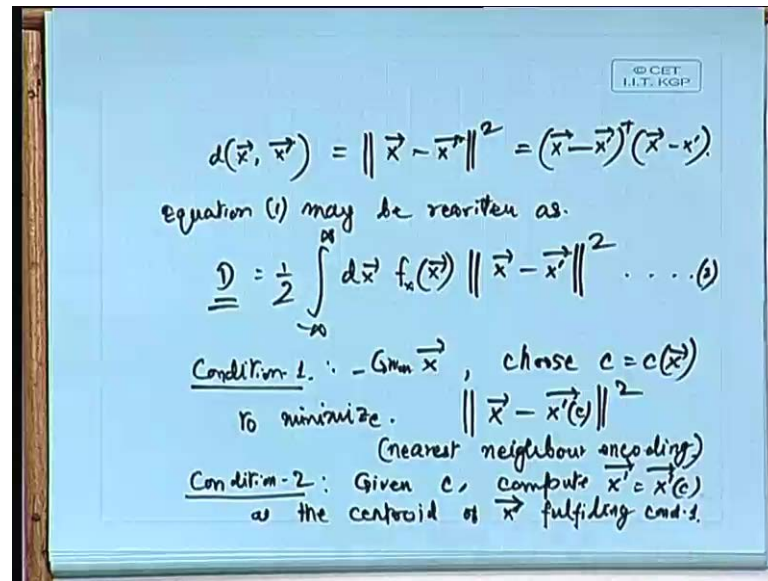 © CET
I.I.T. KGP
d(x⃗, x⃗') = ‖ x⃗ - x⃗' ‖² = (x⃗ - x⃗')ᵀ (x⃗ - x').
Equation (1) may be rewriten as.
D = 1/2 ∫_{-∞}^{∞} dx⃗ fₓ(x⃗) ‖ x⃗ - x⃗' ‖² . . . . (2)
Condition 1. : - Given x⃗ , choose c = c(x⃗)
to minimize. ‖ x⃗ - x⃗'(c) ‖²
(nearest neighbour encoding)
Condition-2 : Given c, compute x⃗' = x⃗'(c)
as the centroid of x⃗ fulfiling cond-1.